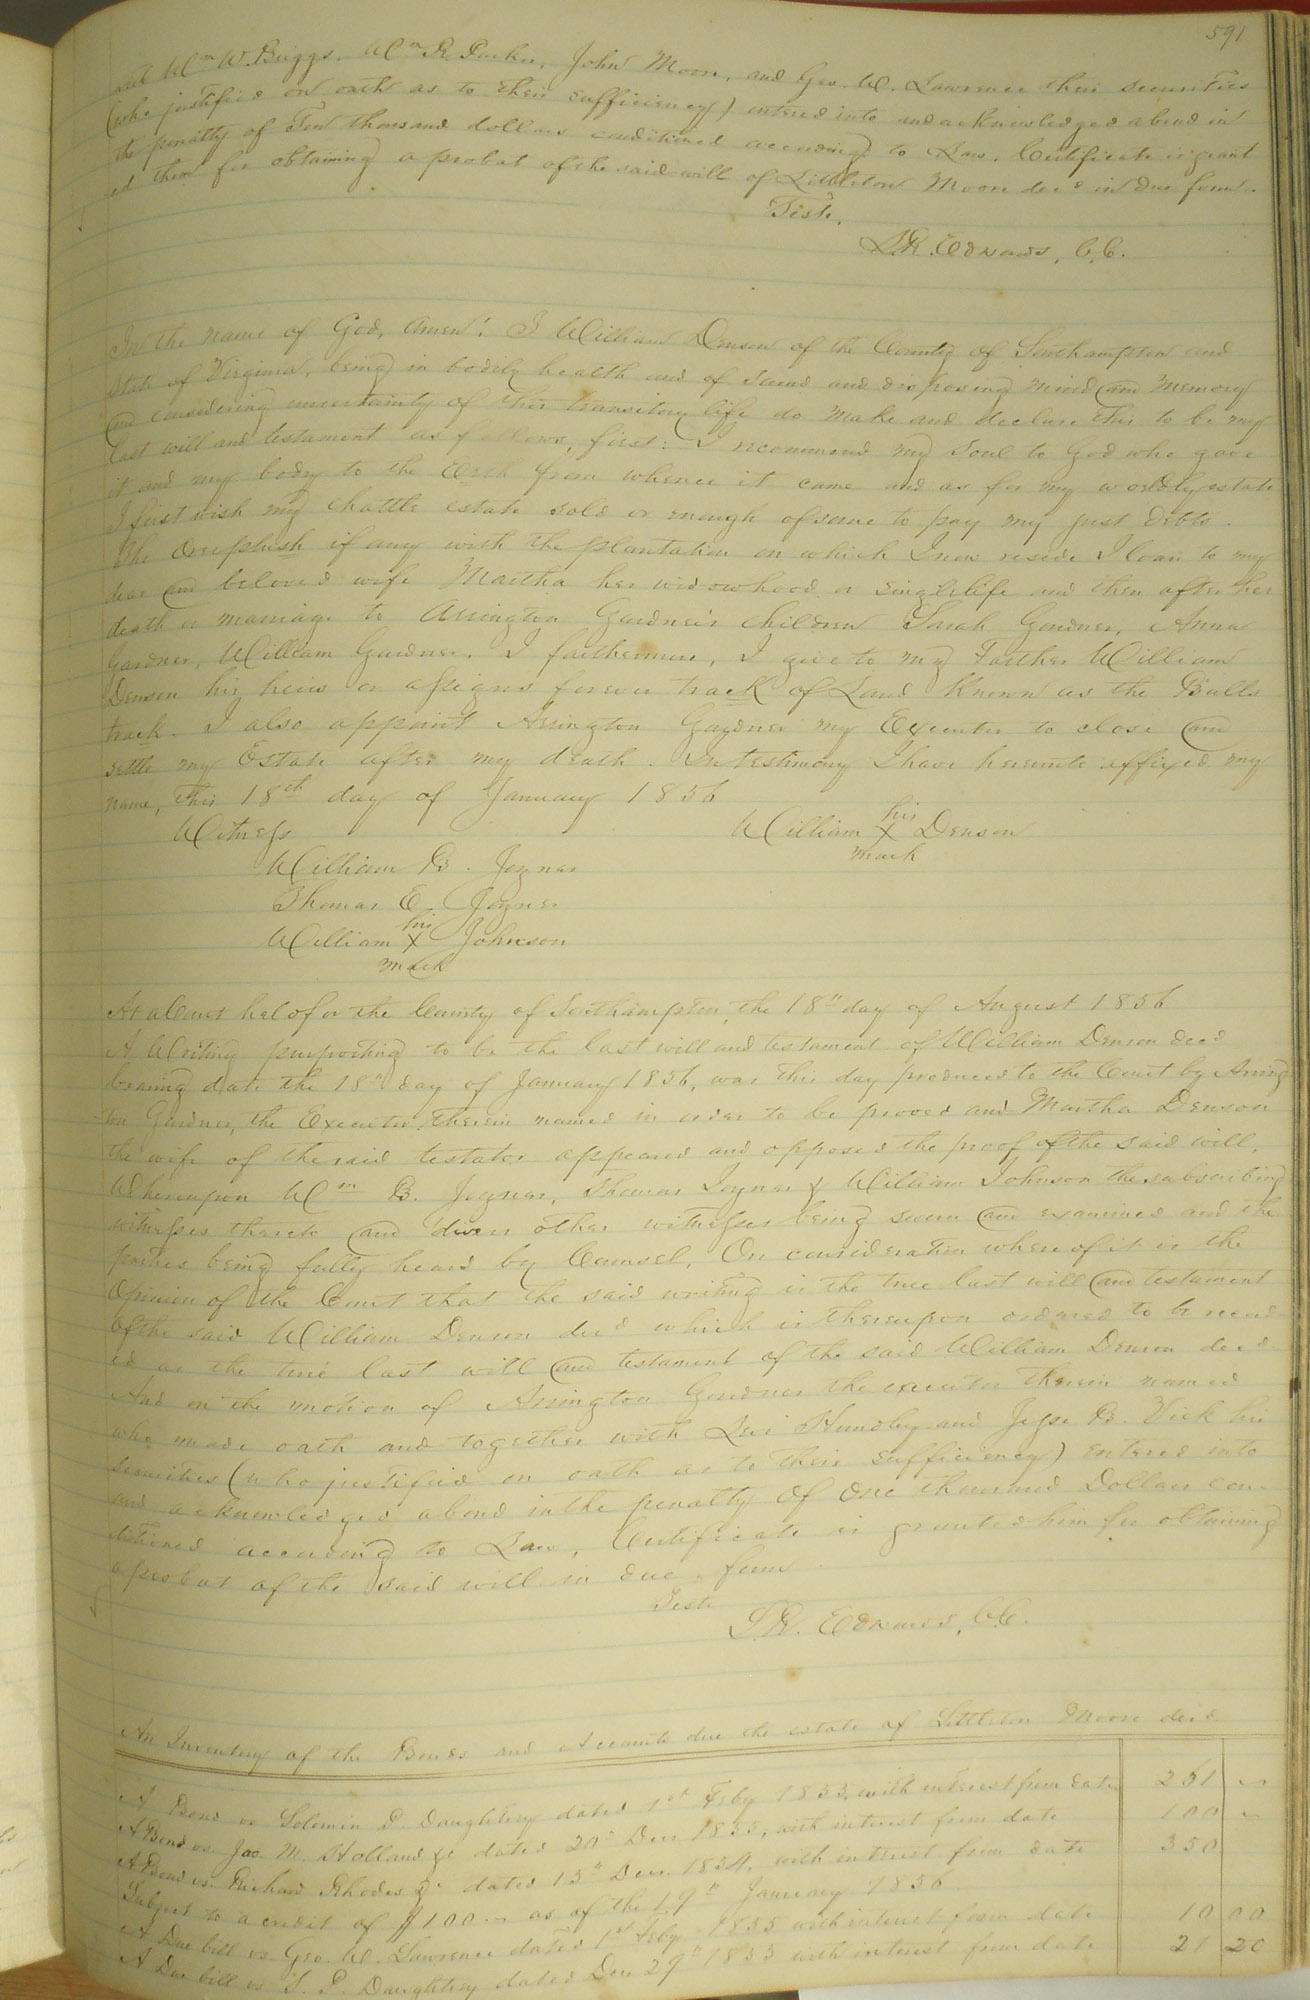 591
and Wm W. Briggs, Wm R. Parker, John Moore, and Geo. W. Lawrence their securities
(who justified on oath as to their sufficiency) entered into and acknowledged a bond in
the penalty of Ten thousand dollars conditioned according to Law. Certificate is grant
ed them for obtaining a probat of the said will of Littleton Moore decd in due form.
Teste,
L.R. Edwards, C.C.
In the name of God, Amen! I William Denson of the County of Southampton and
State of Virginia, being in bodily health and of sound and disposing mind and memory
and considering uncertainty of this transitory life do make and declare this to be my
last will and testament as follows, first: I recommend my Soul to God who gave
it and my body to the Erth from whence it came and as for my worldly estate
I first wish my chattle estate sold or enough of same to pay my just debts.
The if any with the plantation on which I now reside I loan to my
dear and beloved wife Martha her widowhood or single life and then after her
death or marriage to Arrington Gardner's children Sarah Gardner, Anna
Gardner, William Gardner. I farthermore, I give to my Farther William
Denson his heirs or assigns forever track of Land Known as the Bulls
track. I also appoint Arrington Gardner my Executor to close and
settle my Estate after my death. In testimony I have hereunto affixed my
name, This 18th day of January 1856
Witness
William his X mark Denson
William B. Joyner
Thomas E. Joyner
William his X mark Johnson
At a Court held for the County of Southampton, the 18th day of August 1856
A Writing purporting to be the last will and testament of William Denson decd
bearing date the 18th day of January 1856, was this day produced to the Court by Arring
ton Gardner, the Executor therein named in order to be proved and Martha Denson
the wife of the said testator appeared and opposed the proof of the said will,
Whereupon Wm B. Joyner, Thomas Joyner & William Johnson the subscribing
witnesses thereto and divers other witnesses being sworn and examined and the
parties being fully heard by Counsel, On consideration whereof it is the
Opinion of the Court that the said writing is the true last will and testament
of the said William Denson decd which is thereupon ordered to be record
ed as the true last will and testament of the said William Denson decd.
And on the motion of Arrington Gardner the executor therein named
who made oath and together with Levi Hundley and Jesse B. Vick his
securities (who justified on oath as to their sufficiency) entered into
and acknowledged a bond in the penalty of One thousand Dollars con-
ditioned according to Law, Certificate is granted him for obtaining
a probat of the said will in due form
Teste
L.R. Edwards, C.C.
An Inventory of the Bonds and Accounts due the estate of Littleton Moore decd
A Bond vs Solomin P. Daughtrey dated 1st Feby 1853, with interest from date 251 "
A Bond vs. Jas. M. Holland &c dated 20th Decr 1855, with interest from date 100 "
A Bond vs. Richard Rhodes &c dated 15th Decr. 1854, with interest from date 350
Subject to a credit of $100 " as of the 19th January 1856
A Due bill vs. Geo. W. Lawrence dated 1st Feby 1855 with interest from date 10 00
A Due bill vs S. P. Daughtrey dated Dec 29th 1853 with interest from date 21 20